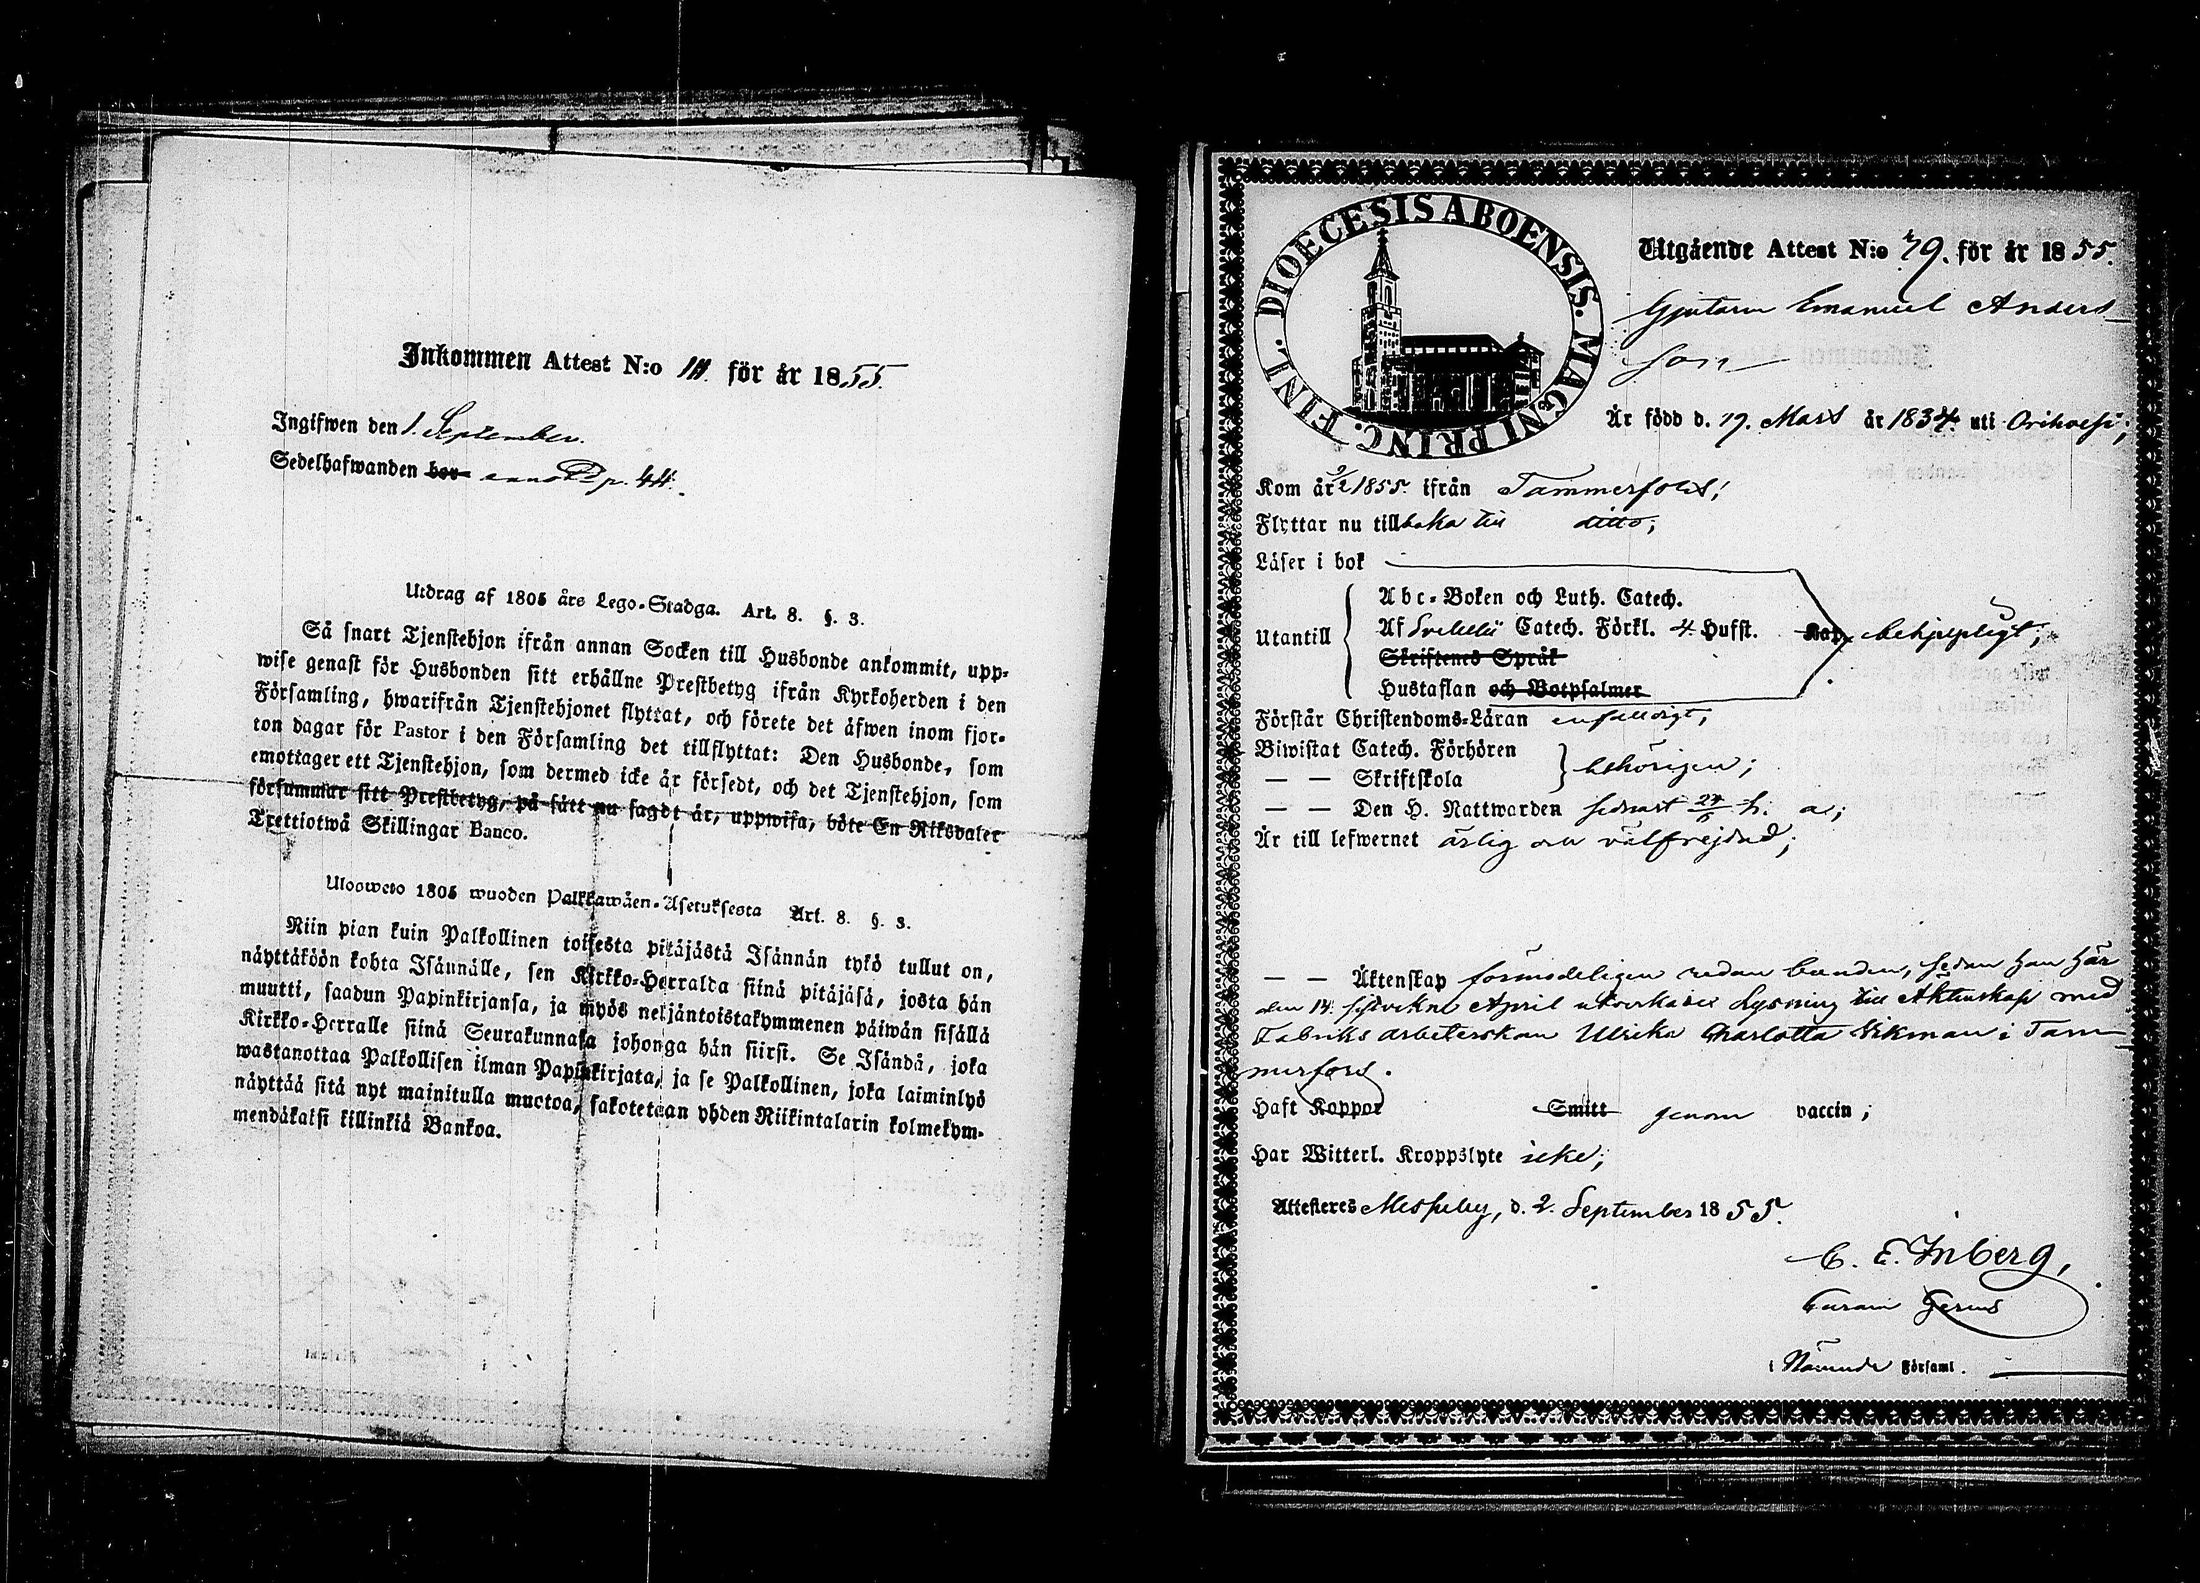 Inkommen Attest N:o för år 1855.
Ingifwen den 1. September.
Sedelhafwanden bor annot. p. 44.
Utdrag af 1805 års Lego-Stadga. Art. 8. §. 3.
Så snart Tjenstehjon ifrån annan Socken till Husbonde ankommit, upp-
wise genast för Husbonden sitt erhållne Prestbetyg ifrån Kyrkoherden i den
Församling, hwarifrån Tjenstehjonet flyttat, och förete det äfwen inom fjor-
ton dagar för Pastor i den Församling det tillflyttat: Den Husbonde, som
emottager ett Tjenstehjon, som dermed icke är försedt, och det Tjenstehjon, som
försummar sitt Prestbetyg, på sätt nu sagdt är, uppwisa, böte En Riksdaler
Trettiotwå Skillingar Banco.
Ulosweto 1805 wuoden Palkkawäen-Asetuksesta Art. 8. §. 3.
Niin pian kuin Palkollinen toisesta pitäjästä Isännän tykö tullut on,
näyttäköön kohta Isännälle, sen Kirkko-Herralda siinä pitäjäsä, josta hän
muutti, saadun Papinkirjansa, ja myös neljäntoistakymmenen päiwän sisällä
Kirkko-Herralle siinä Seurakunnasa johonga hän siirsi. Se Isändä, joka
wastanottaa Palkollisen ilman Papinkirjata, ja se Palkollinen, joka laiminlyö
näyttää sitä nyt mainitulla muotoa, sakotetaan yhden Riikintalarin kolmekym-
mendäkaksi killinkiä Bankoa.
DIOECESIS ABOENSIS. MAGNI PRINC. FINL.
Utgående Attest N:o 79. för år 1855.
Gjutaren Emanuel Anders-
son
Är född d. 19. Mars år 1834 uti Orihvesi;
Kom år 1855. ifrån Tammerfors;
Flyttar nu tillbaka till ditto;
Läser i bok
Utantill
Abc-Boken och Luth. Catech.
Af Svebelii Catech. Förkl. 4. Hufst. Kap. behjelpligt;
Skriftenes Språk
Hustaflan och Botpsalmer
Förstår Christendoms-Läran enfaldigt;
Biwistat Catech. Förhören
— — Skriftskola behörigen;
— — Den H. Nattwarden senast h. a;
Är till lefwernet ärlig och välfrejdad;
— — Äktenskap förmodeligen redan bunden, sedan han här
den 14. sistvekne April utverkades Lysning till Äktenskap med
Fabriks arbeterskan Ulrika Charlotta Wikman i Tam-
merfors.
Haft Koppor Smitt genom vaccin;
Har Witterl. Kroppslyte icke;
Attesteras Messuby, d. 2. September 1855.
C. E. Inberg,
Curam Gerens
i Nämnde Församl.